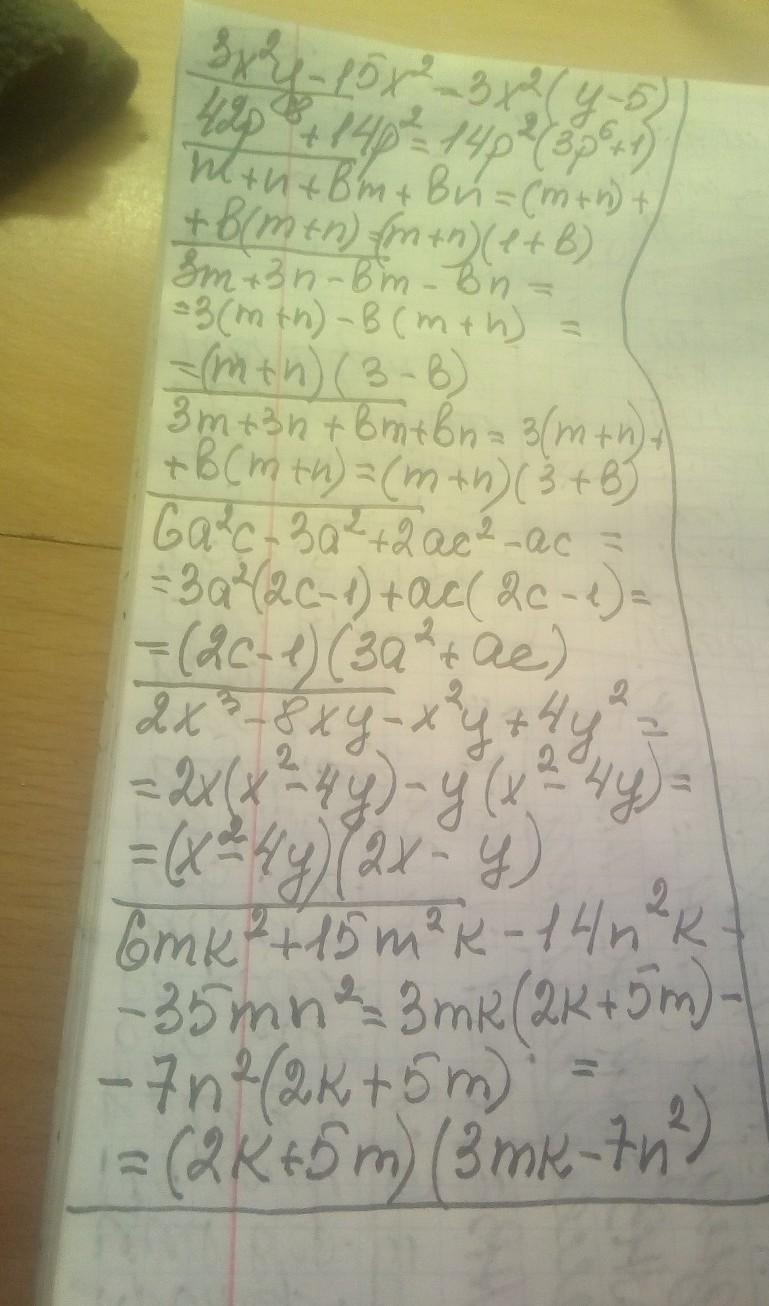 3x²y-15x²=3x²(y-5)
42p⁸+14p²=14p²(3p⁶+1)
m+n+вm+вn=(m+n)+
+в(m+n)=(m+n)(1+в)
3m+3n-вm-вn=
=3(m+n)-в(m+n) =
=(m+n)(3-в)
3m+3n+вm+вn=3(m+n)+
+в(m+n)=(m+n)(3+в)
6a²c-3a²+2ac²-ac =
=3a²(2c-1)+ac(2c-1)=
=(2c-1)(3a²+ac)
2x³-8xy-x²y+4y²=
=2x(x²-4y)-y(x²-4y)=
=(x²-4y)(2x-y)
6mk²+15m²k-14n²k-
-35mn²=3mk(2k+5m)-
-7n²(2k+5m) =
=(2k+5m)(3mk-7n²)